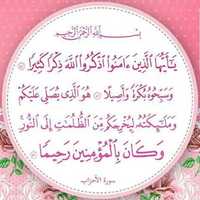 بسم الله الرحمن الرحيم
يَٰٓأَيُّهَا الَّذِينَ ءَامَنُوا اذْكُرُوا اللَّهَ ذِكْرًا كَثِيرًا
وَسَبِّحُوهُ بُكْرَةً وَأَصِيلًا هُوَ الَّذِي يُصَلِّي عَلَيْكُمْ
وَمَلَٰٓئِكَتُهُ لِيُخْرِجَكُم مِّنَ الظُّلُمَٰتِ إِلَى النُّورِ
وَكَانَ بِالْمُؤْمِنِينَ رَحِيمًا
سورة الأحزاب